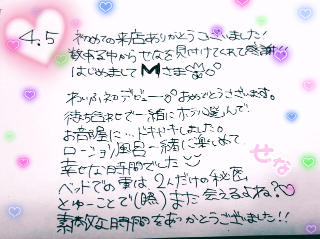 4.5 初めての来店ありがとうございました!
数ある中からせなを見付けてくれて感謝!!
はじめましてMさま
わりふ初デビューおめでとうございます。
待ち合わせで一緒にホテル選んで、
お部屋に…ドキドキしました。
ローション風呂一緒に楽しめて
幸せな時間でした
ベッドでの事は、2人だけの秘密
とゆーことで(照)また会えるよね?♡
素敵な時間をありがとうございました!!
せな